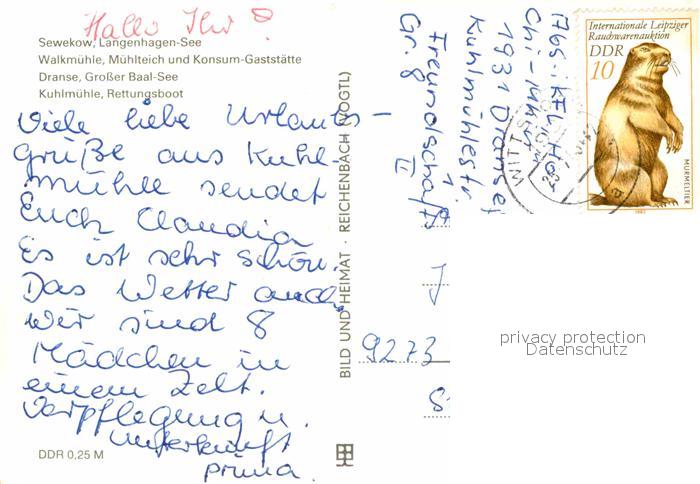 Hallo Ihr!
Sewekow, Langenhagen-See
Walkmühle, Mühlteich und Konsum-Gaststätte
Dranse, Großer Baal-See
Kuhlmühle, Rettungsboot
Viele liebe Urlaubs-
grüße aus Kuhl-
mühle sendet
Euch Claudia
Es ist sehr schön.
Das Wetter auch.
Wir sind 8
Mädchen in
einem Zelt.
Verpflegung u.
Unterkunft
prima.
DDR 0,25 M
BILD UND HEIMAT · REICHENBACH (VOGTL)
Abs.: KFL Hot
1931 Dranse
Kuhlmühlestr. 1
Freundschaft II
Gr. 8
J
9273
S
Internationale Leipziger
Rauchwarenauktion
DDR
10
MURMELTIER
1982
WITTSTOCK
privacy protection
Datenschutz